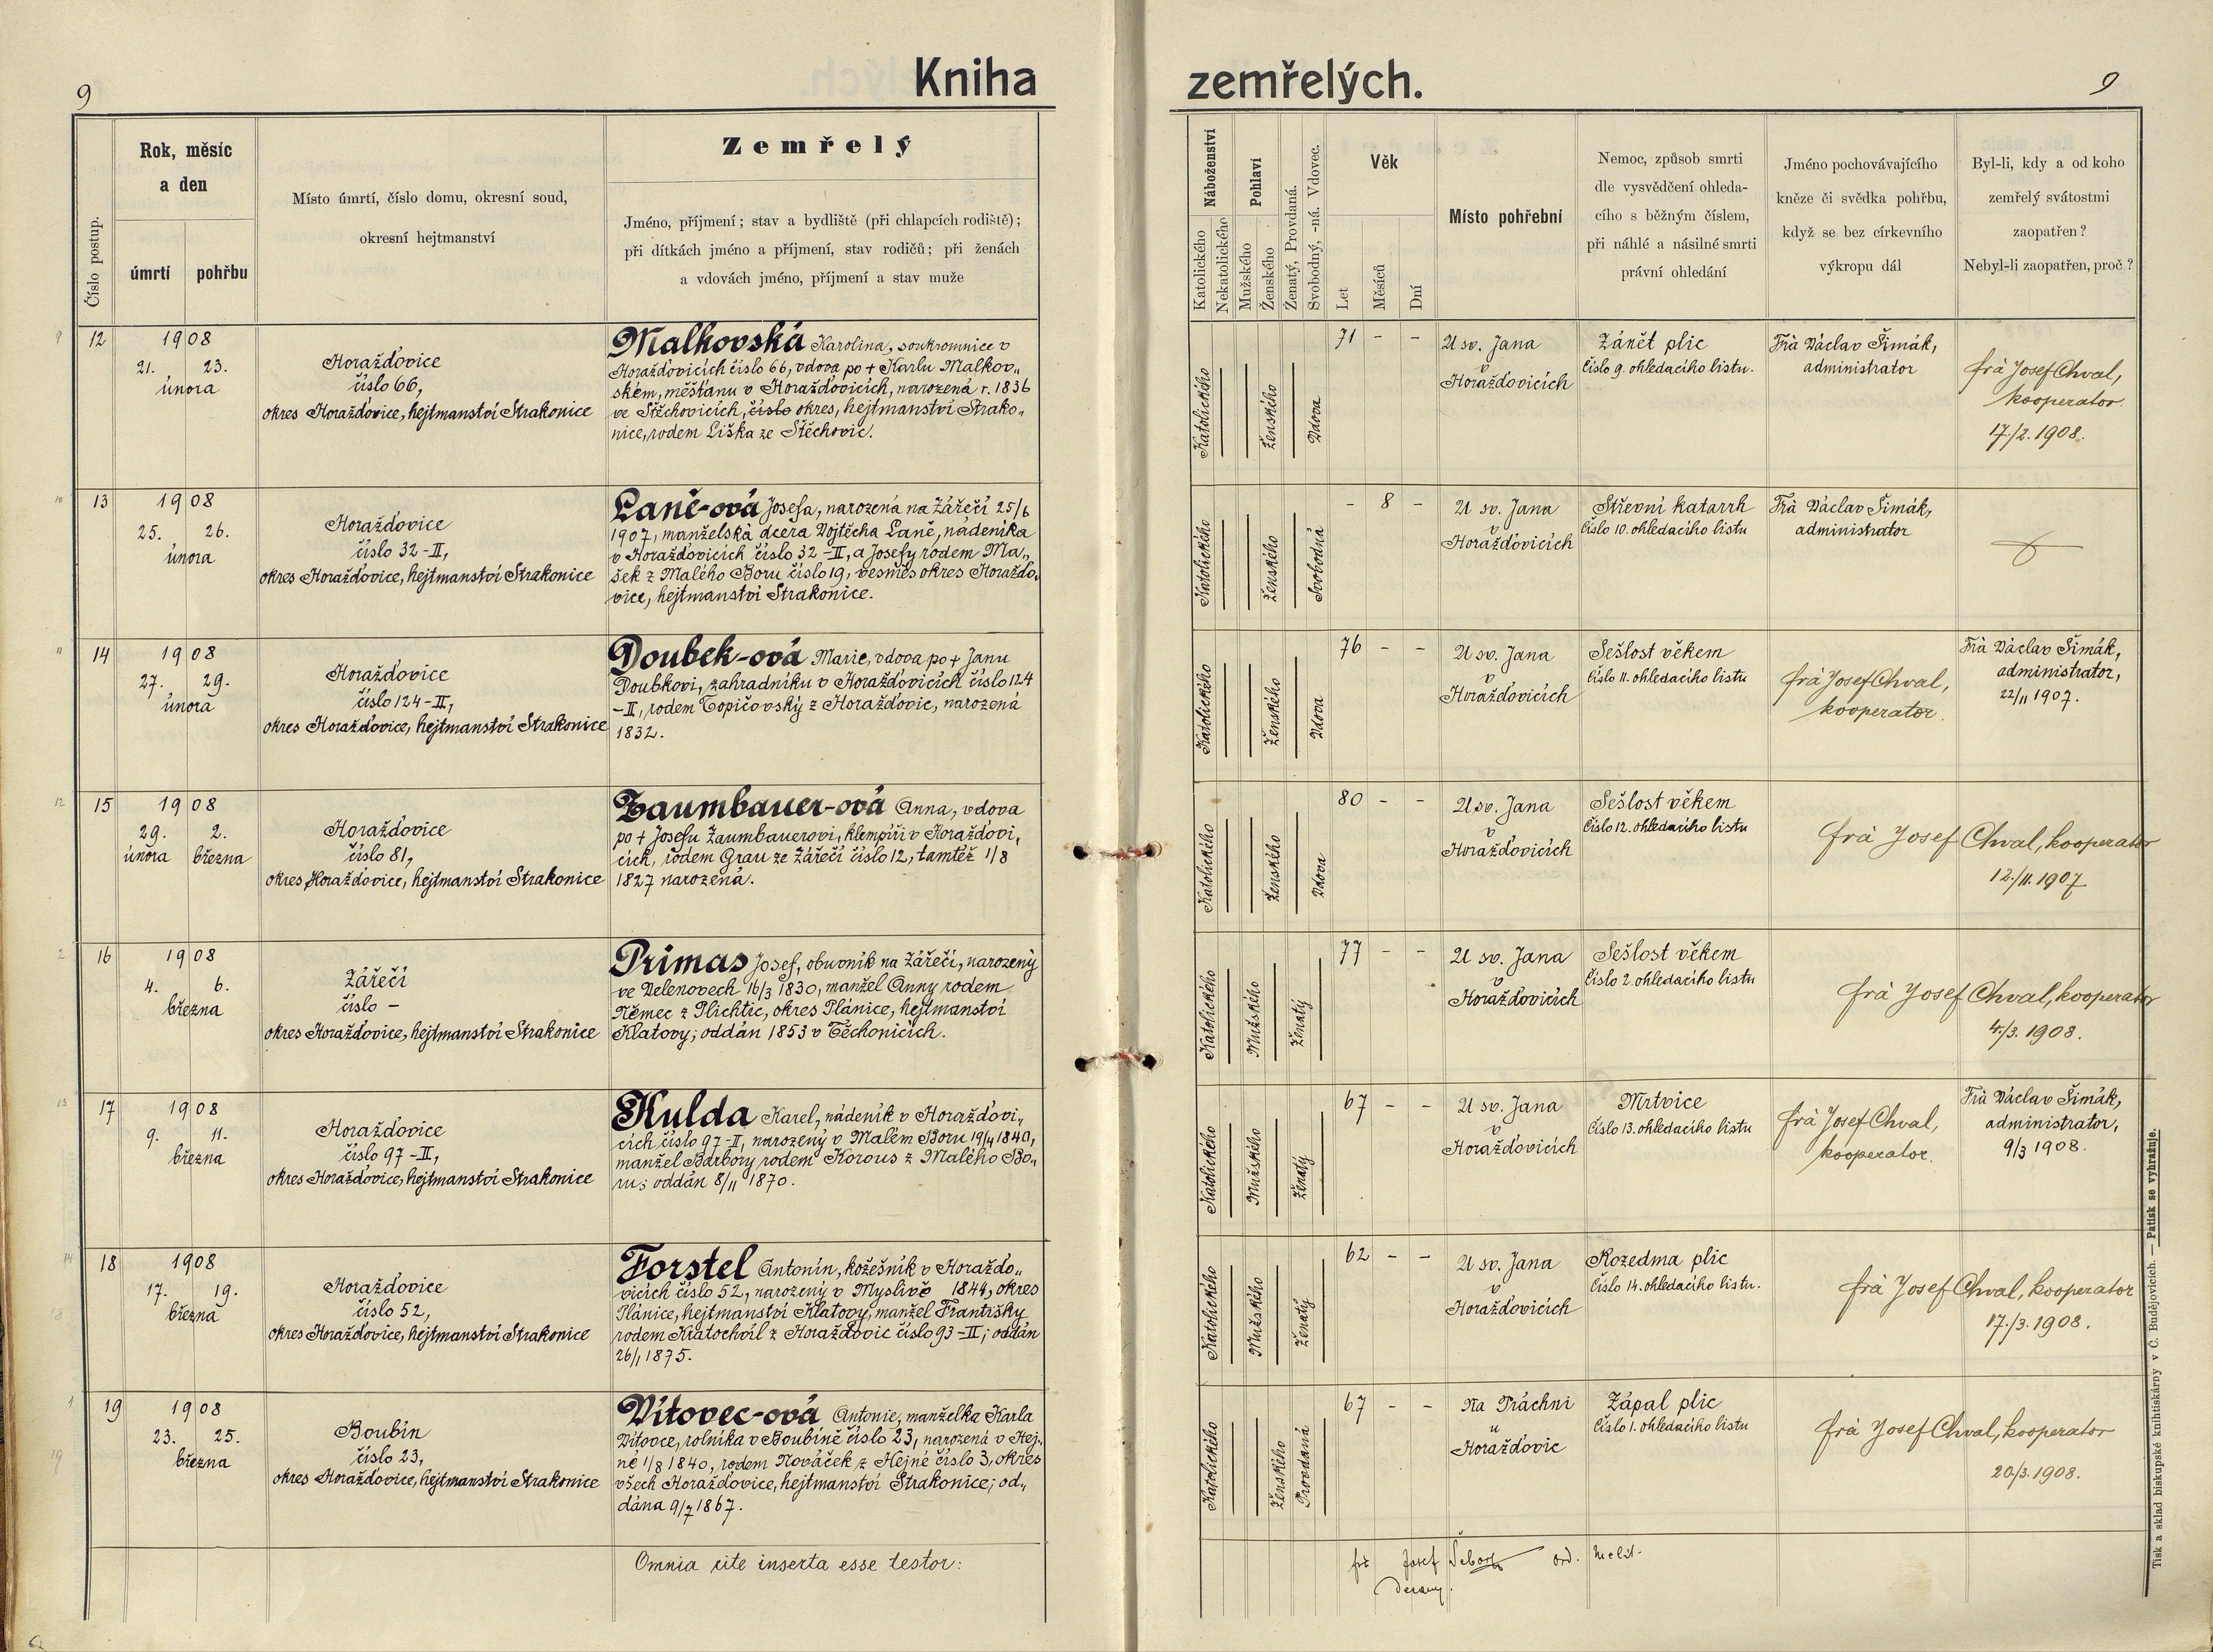 9
Kniha
zemřelých.
9
Číslo postup.
Rok, měsíc
a den
úmrtí
pohřbu
Místo úmrtí, číslo domu, okresní soud,
okresní hejtmanství
Zemřelý
Jméno, příjmení; stav a bydliště (při chlapcích rodiště);
při dítkách jméno a příjmení, stav rodičů; při ženách
a vdovách jméno, příjmení a stav muže
Náboženství
Katolického
Nekatolického
Pohlaví
Mužského
Ženského
Ženatý, Provdaná.
Svobodný, -ná. Vdovec.
Věk
Let
Měsíců
Dní
Místo pohřební
Nemoc, způsob smrti
dle vysvědčení ohleda-
cího s běžným číslem,
při náhlé a násilné smrti
právní ohledání
Jméno pochovávajícího
kněze či svědka pohřbu,
když se bez církevního
výkropu dál
Byl-li, kdy a od koho
zemřelý svátostmi
zaopatřen?
Nebyl-li zaopatřen, proč?
9
12
1908
21. 23.
února
Horažďovice
číslo 66,
okres Horažďovice, hejtmanství Strakonice
Malkovská Karolina, soukromnice v
Horažďovicích číslo 66, vdova po + Karlu Malkov„
ském, měšťanu v Horažďovicích, narozená r. 1836
ve Stěchovicích, číslo okres, hejtmanství Strako„
nice, rodem Liška ze Stěchovic.
Katolického
Ženského
Vdova
71 - -
U sv. Jana
v
Horažďovicích
Zánět plic
Číslo 9. ohledacího listu.
Frà Václav Šimák,
administrator
frà Josef Chval,
kooperator.
17./2. 1908.
10
13
1908
25. 26.
února
Horažďovice
číslo 32-II,
okres Horažďovice, hejtmanství Strakonice
Laně-ová Josefa, narozená na Zářečí 25/6
1907, manželská dcera Vojtěcha Laně, nádeníka
v Horažďovicích číslo 32-II, a Josefy rodem Ma„
šek z Malého Boru číslo 19, vesměs okres Horažďo„
vice, hejtmanství Strakonice.
Katolického
Ženského
Svobodná
- 8 -
U sv. Jana
v
Horažďovicích
Střevní katarrh
Číslo 10. ohledacího listu
Frà Václav Šimák,
administrator
11
14
1908
27. 29.
února
Horažďovice
číslo 124-II,
okres Horažďovice, hejtmanství Strakonice
Doubek-ová Marie, vdova po + Janu
Doubkovi, zahradníku v Horažďovicích číslo 124
-II, rodem Topičovský z Horažďovic, narozená
1832.
Katolického
Ženského
Vdova
76 - -
U sv. Jana
v
Horažďovicích
Sešlost věkem
Číslo 11. ohledacího listu
frà Josef Chval,
kooperator.
Frà Václav Šimák,
administrator,
22/11 1907.
12
15
1908
29. 2.
února března
Horažďovice
číslo 81,
okres Horažďovice, hejtmanství Strakonice
Zaumbauer-ová Anna, vdova
po + Josefu Zaumbauerovi, klempíři v Horažďovi„
cích, rodem Grau ze Zářečí číslo 12, tamtéž 1/8
1827 narozená.
Katolického
Ženského
Vdova
80 - -
U sv. Jana
v
Horažďovicích
Sešlost věkem
Číslo 12. ohledacího listu
frà Josef Chval, kooperator
12./11. 1907
2
16
1908
4. 6.
března
Zářečí
číslo –
okres Horažďovice, hejtmanství Strakonice
Primas Josef, obuvník na Zářečí, narozený
ve Velenovech 16/3 1830, manžel Anny rodem
Němec z Plichtic, okres Plánice, hejtmanství
Klatovy; oddán 1853 v Těchonicích.
Katolického
Mužského
Ženatý
77 - -
U sv. Jana
v
Horažďovicích
Sešlost věkem
Číslo 2. ohledacího listu
frà Josef Chval, kooperator
4./3. 1908.
13
17
1908
9. 11.
března
Horažďovice
číslo 97-II,
okres Horažďovice, hejtmanství Strakonice
Kulda Karel, nádeník v Horažďovi„
cích číslo 97-II, narozený v Malém Boru 19/4 1840,
manžel Barbory rodem Korous z Malého Bo„
ru; oddán 8/11 1870.
Katolického
Mužského
Ženatý
67 - -
U sv. Jana
v
Horažďovicích
Mrtvice
Číslo 13. ohledacího listu
frà Josef Chval,
kooperator.
Frà Václav Šimák,
administrator,
9/3 1908.
14
18
18
1908
17. 19.
března
Horažďovice
číslo 52,
okres Horažďovice, hejtmanství Strakonice
Forstel Antonín, kožešník v Horažďo„
vicích číslo 52, narozený v Myslivě 1844, okres
Plánice, hejtmanství Klatovy, manžel Františky
rodem Kratochvíl z Horažďovic číslo 93-II; oddán
26/1 1875.
Katolického
Mužského
Ženatý
62 - -
U sv. Jana
v
Horažďovicích
Rozedma plic
Číslo 14. ohledacího listu.
frà Josef Chval, kooperator
17./3. 1908.
1
19
19
1908
23. 25.
března
Boubín
číslo 23,
okres Horažďovice, hejtmanství Strakonice
Vítovec-ová Antonie, manželka Karla
Vítovce, rolníka v Boubíně číslo 23, narozená v Hej„
né 1/8 1840, rodem Nováček z Hejné číslo 3, okres
všech Horažďovice, hejtmanství Strakonice; od„
dána 9/7 1867.
Katolického
Ženského
Provdaná
67 - -
Na Práchni
u
Horažďovic
Zápal plic
Číslo 1. ohledacího listu
frà Josef Chval, kooperator
20/3. 1908.
Omnia rite inserta esse testor:
frà Josef ord. Melit.
Tisk a sklad biskupské knihtiskárny v Č. Budějovicích. — Patisk se vyhražuje.